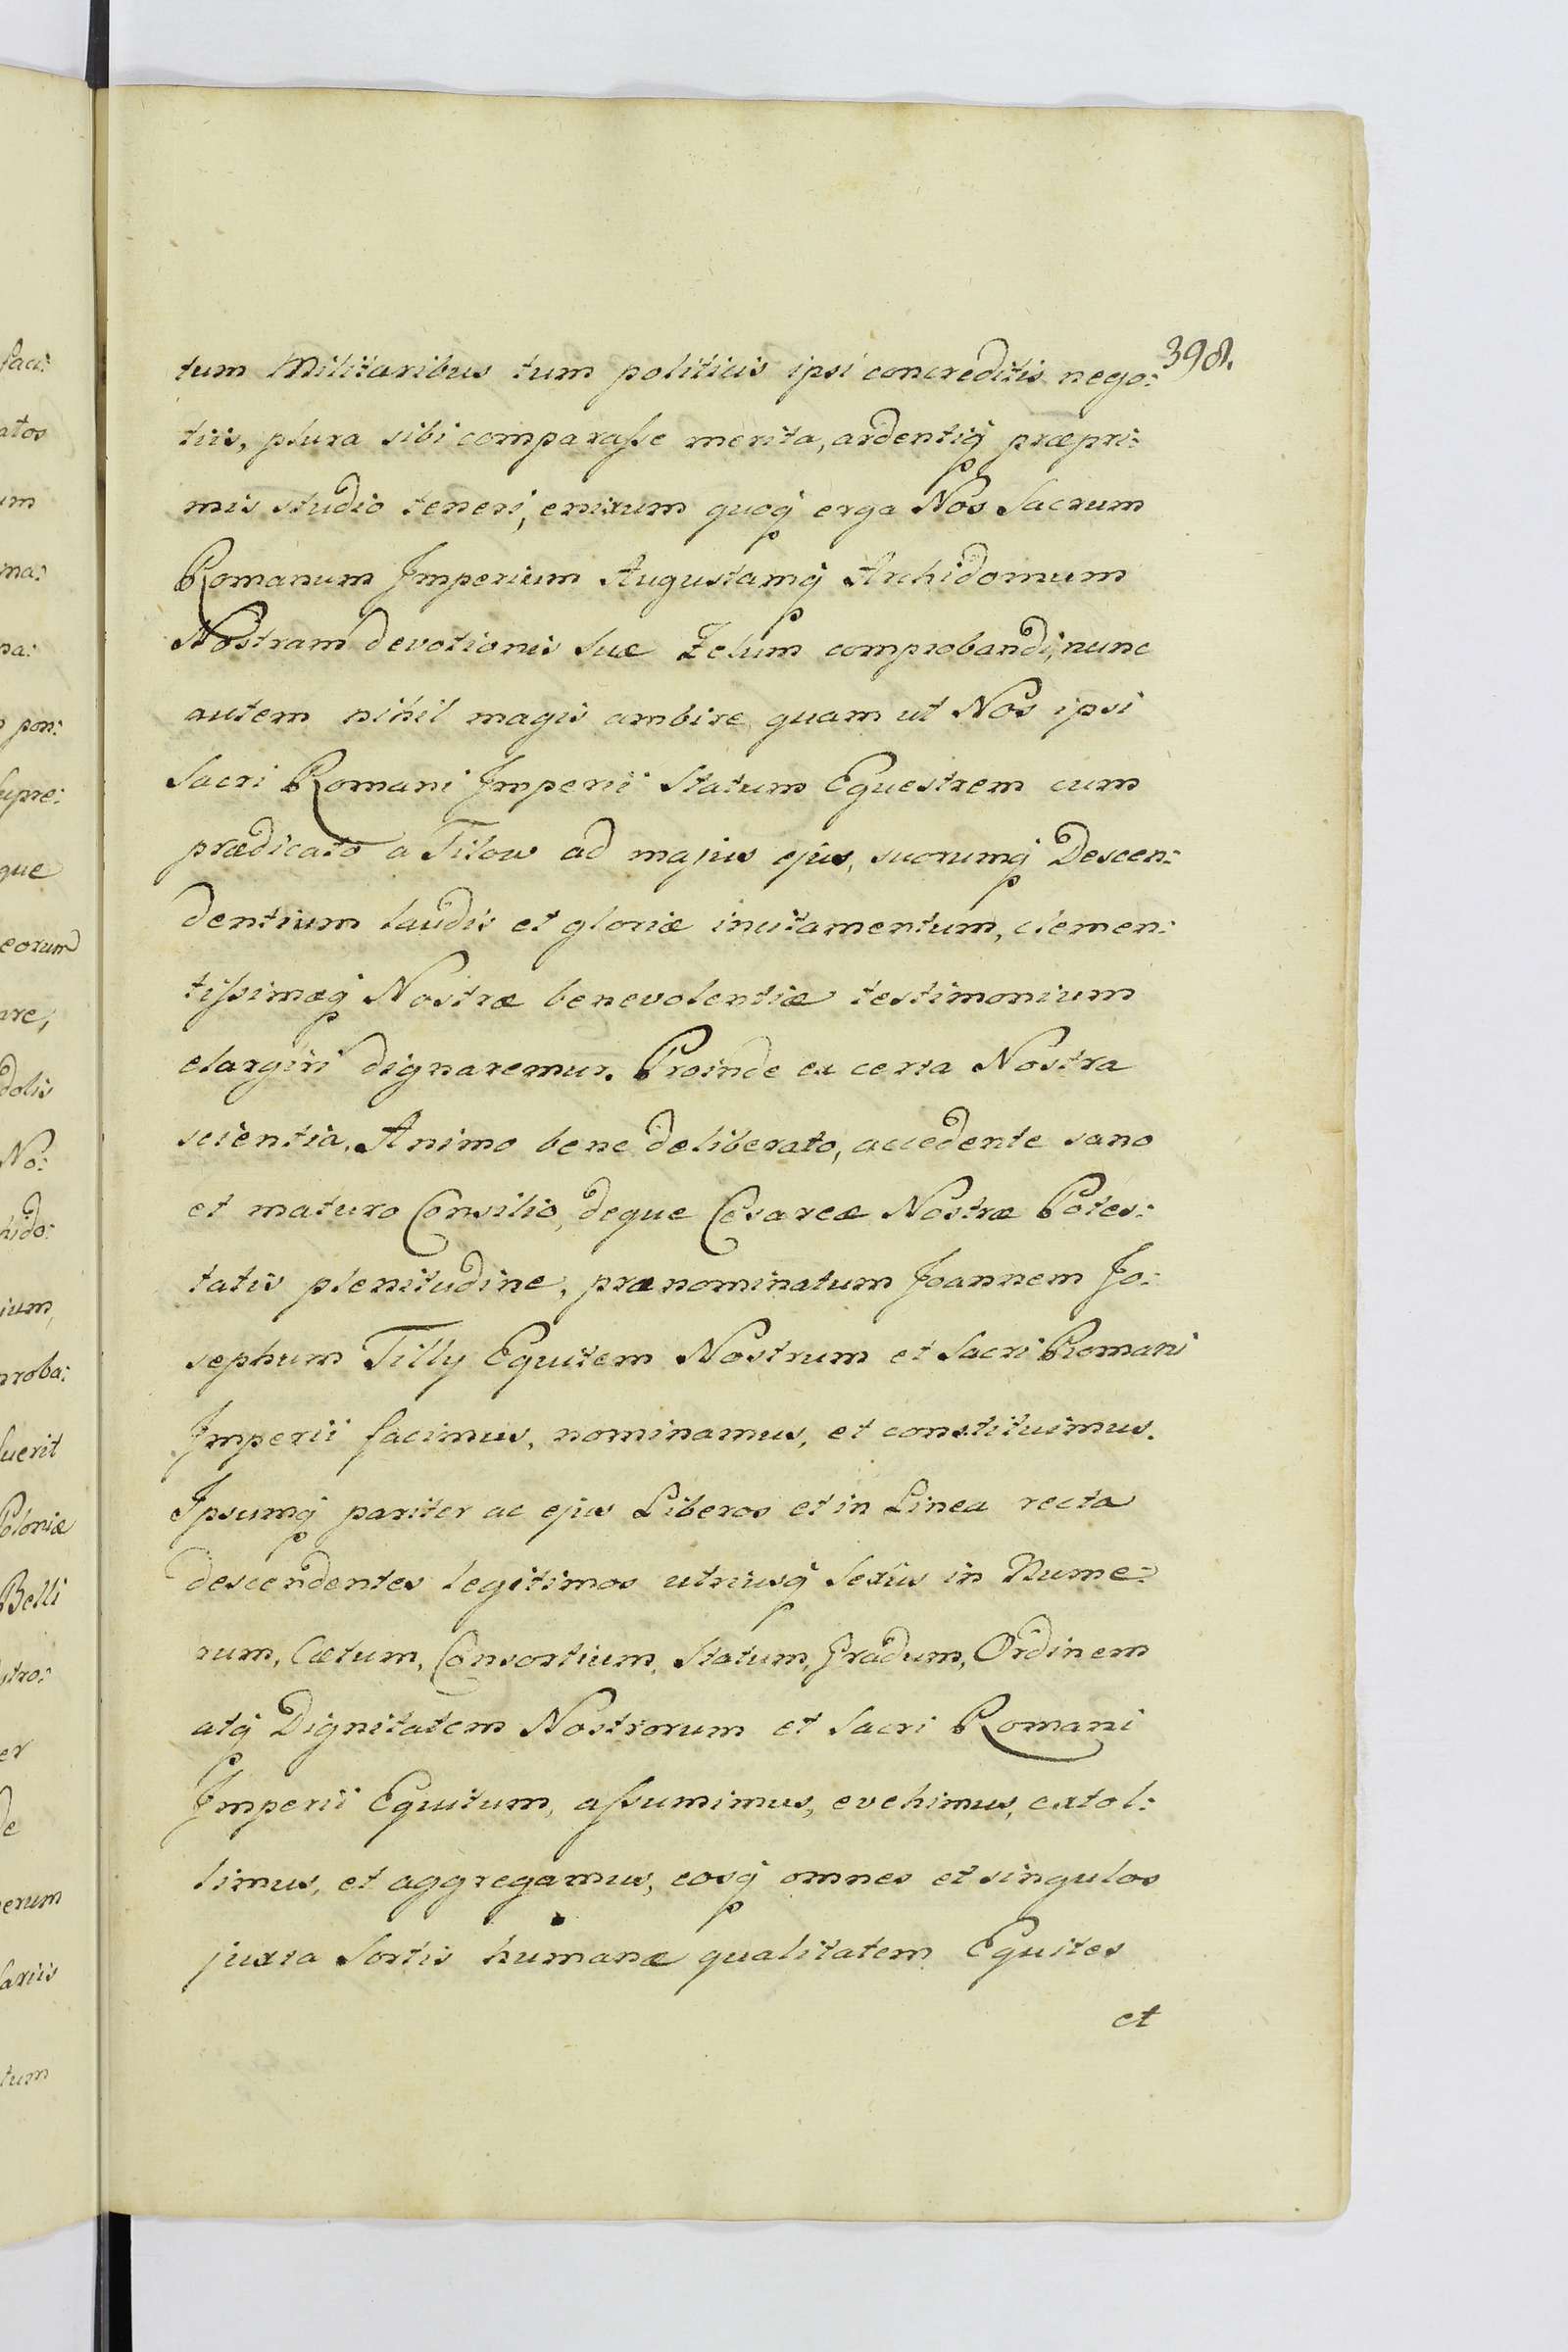 398.
tum Militaribus tum politicis ipsi concreditis nego:
tiis, plura sibi comparaſse merita, ardentiq́ præpri:
mis studio teneri, enixum quoq́ erga Nos Sacrum
Romanum Imperium Augustamq́ Archidomum
Nostram devotionis suæ Zelum comprobandi, nunc
autem nihil magis ambire quam ut Nos ipsi
Sacri Romani Imperii Statum Equestrem cum
prædicato a Tilow ad majus ejus, suorumq́ Descen:
dentium laudis et gloriæ incitamentum, clemen:
tiſsimæq́ Nostræ benevolentiæ testimonium
elargiri dignaremur. Proinde ex certa Nostra
scientia, Animo bene deliberato, accedente sano
et maturo Consilio, deque Cesareæ Nostræ Potes:
tatis plenitudine, prænominatum Joannem Jo:
sephum Tilly Equitem Nostrum et Sacri Romani
Imperii facimus, nominamus, et constituimus.
Ipsumq́ pariter ac ejus Liberos et in Linea recta
descendentes legitimos utriusq́ Sexus in Nume:
rum, Cætum, Consortium, Statum, Gradum, Ordinem
atq́ Dignitatem Nostrorum et Sacri Romani
Imperii Equitum, aſsumimus, evehimus, extol:
limus, et aggregamus, eosq́ omnes et singulos
juxta Sortis humanæ qualitatem Equites
et
faci:
atos
um
ma:
na:
pon:
Supre:
que
eorum
are,
dolis
No:
hido:
ium,
proba:
fuerit
Poloniæ
Belli
stro:
er
de
erum
lariis
tum